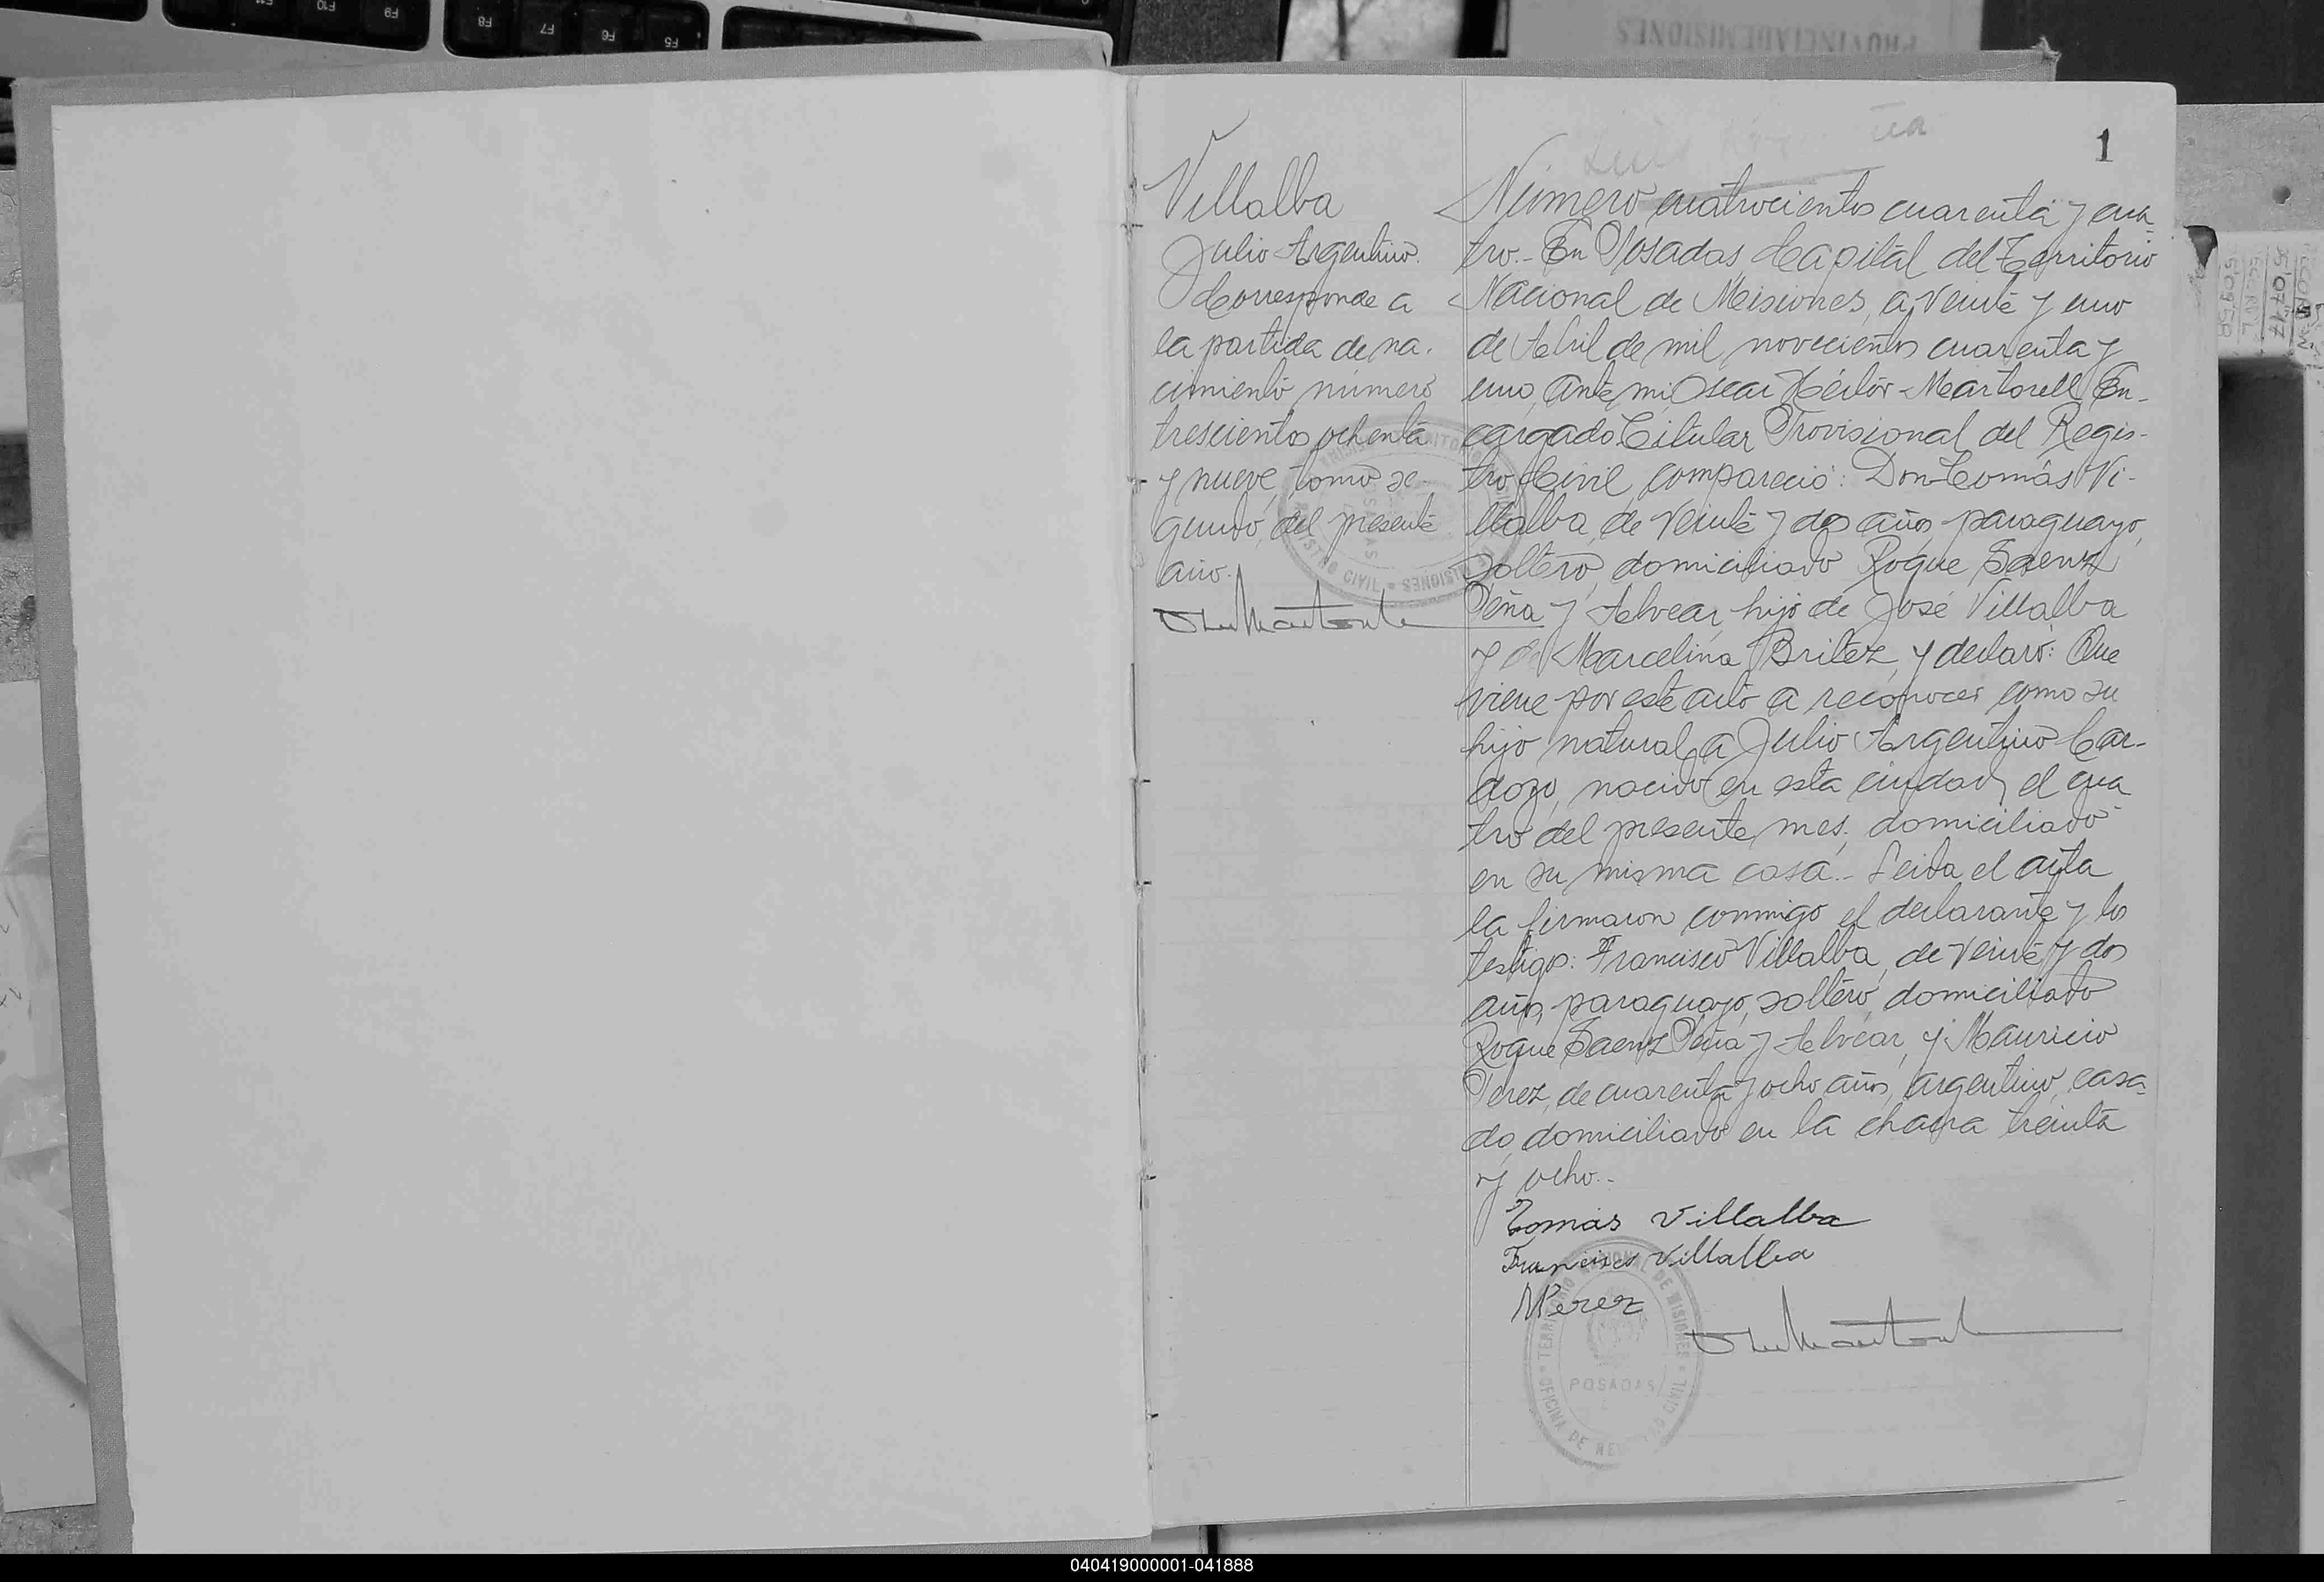 1
Villalba
Julio Argentino.
Corresponde a
la partida de na-
cimiento número
trescientos ochenta
y nueve, tomo se-
gundo, del presente
año.
Número cuatrocientos cuarenta y cua-
tro.- En Posadas, Capital del Territorio
Nacional de Misiones, a veinte y uno
de Abril de mil novecientos cuarenta y
uno, ante mi Oscar Héctor Martorell En-
cargado Titular Provisional del Regis-
tro Civil, compareció: Don Tomás Vi-
llalba, de veinte y dos años, paraguayo,
soltero, domiciliado Roque Saenz
Peña y Alvear, hijo de José Villalba
y de Marcelina Britez, y declaró: Que
viene por este acto a reconocer como su
hijo natural, a Julio Argentino Car-
dozo, nacido en esta ciudad, el cua-
tro del presente mes, domiciliado
en su misma casa.- Leida el acta
la firmaron conmigo el declarante y los
testigos: Francisco Villalba, de veinte y dos
años, paraguayo, soltero, domiciliado
Roque Saenz Peña y Alvear, y Mauricio
Perez, de cuarenta y ocho años, argentino, casa-
do, domiciliado en la chacra treinta
y ocho.-
Tomás Villalba
Francisco Villalba
M Perez
TERRITORIO NACIONAL DE MISIONES
OFICINA DE REGISTRO CIVIL
POSADAS
040419000001-041888